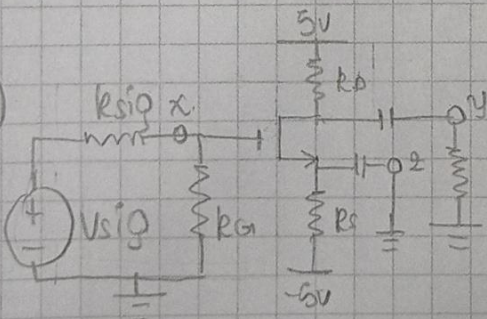 5V
RD
Rsig x
y
2
Vsig
RG
RS
-5V